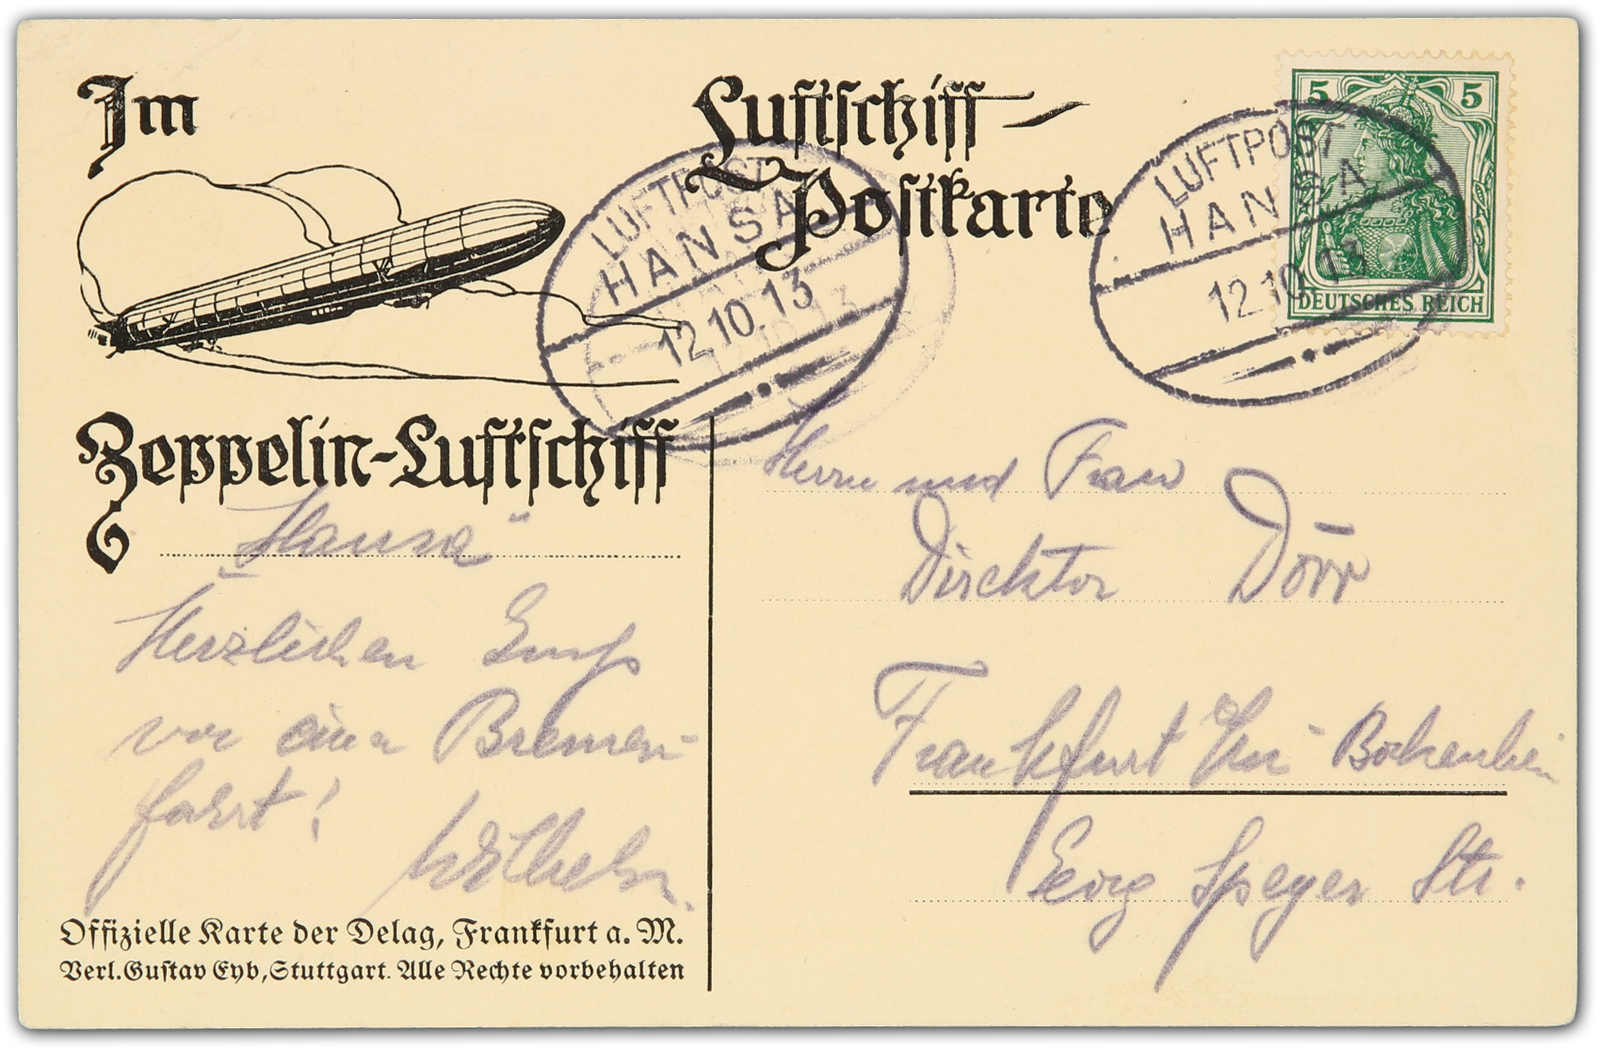 Im
Zeppelin-Luftschiff
„Hansa"
Herzlichen Gruß
vor einer Bremen-
fahrt!
Wilhelm.
Offizielle Karte der Delag, Frankfurt a. M.
Verl. Gustav Eyb, Stuttgart. Alle Rechte vorbehalten
Luftschiff-
Postkarte
LUFTPOST
HANSA
12.10.13
LUFTPOST
HANSA
12.10.13
5 5
DEUTSCHES REICH
Herrn und Frau
Direktor Dörr
Frankfurt Bockenheim
Georg Speyer Str.